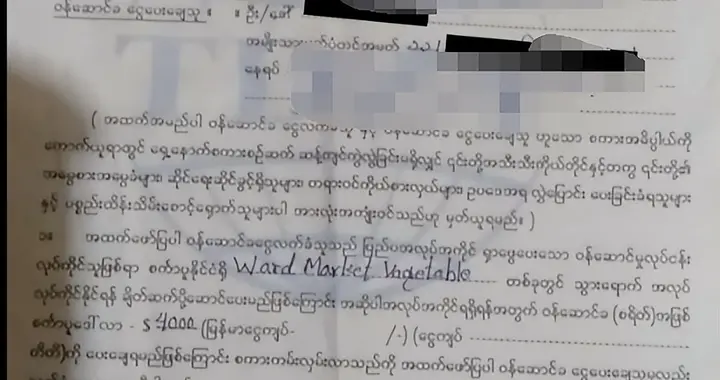 ဝန်ဆောင်ခ ငွေပေးချေသူ ။ ။ ဦး/ဒေါ်
အမျိုးသားမှတ်ပုံတင်အမှတ်
နေရပ်
( အထက်အမည်ပါ ဝန်ဆောင်ခ ငွေလက်ခံသူ နှင့် ဝန်ဆောင်ခ ငွေပေးချေသူ ဟူသော စကားအဓိပ္ပါယ်ကို
ကောက်ယူရာတွင် ရှေ့နောက်စကားစဉ်ဆက် ဆန့်ကျင်ကွဲလွဲခြင်းမရှိလျှင် ၎င်းတို့အသီးသီးကိုယ်တိုင်နှင့်တကွ ၎င်းတို့၏
အမွေစားအမွေခံများ၊ ဆိုင်ရေးဆိုင်ခွင့်ရှိသူများ၊ တရားဝင်ကိုယ်စားလှယ်များ၊ ဥပဒေအရ လွှဲပြောင်း ပေးခြင်းခံရသူများ
နှင့် ပစ္စည်းထိန်းသိမ်းစောင့်ရှောက်သူများပါ အားလုံးအကျုံးဝင်သည်ဟု မှတ်ယူရမည်။ )
၁။ အထက်ဖော်ပြပါ ဝန်ဆောင်ခငွေလက်ခံသူသည် ပြည်ပအလုပ်အကိုင် ရှာဖွေပေးသော ဝန်ဆောင်မှုလုပ်ငန်း
လုပ်ကိုင်သူဖြစ်ရာ စင်္ကာပူနိုင်ငံရှိ Ward Market Vegetable တစ်ခုတွင် သွားရောက် အလုပ်
လုပ်ကိုင်နိုင်ရန် ချိတ်ဆက်ပို့ဆောင်ပေးမည်ဖြစ်ကြောင်း အဆိုပါအလုပ်အကိုင်ရရှိရန်အတွက် ဝန်ဆောင်ခ (စရိတ်)အဖြစ်
စင်္ကာပူဒေါ်လာ - S 4000 (မြန်မာငွေကျပ်- /-) (ငွေကျပ်
တိတိ)ကို ပေးချေရမည်ဖြစ်ကြောင်း စကားကမ်းလှမ်းလာသည်ကို အထက်ဖော်ပြပါ ဝန်ဆောင်ခ ငွေပေးချေသူမှလည်း